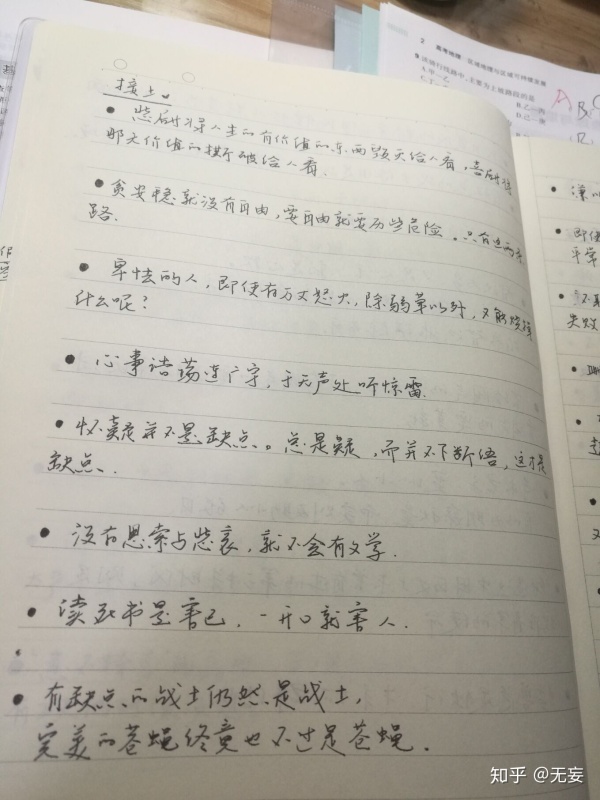 接上。
• 悲剧将人生的有价值的东西毁灭给人看，喜剧将
那无价值的撕破给人看．
• 贪安稳就没有自由，要自由就要历些危险。只有这两条
路．
• 卑怯的人，即使有万丈怒火，除弱草以外，又能烧掉
什么呢？
• 心事浩荡连广宇，于无声处听惊雷．
• 怀疑并不是缺点。总是疑，而并不下断语，这才是
缺点．
• 没有思索与悲哀，就不会有文学．
• 读死书是害己，一开口就害人．
•
• 有缺点的战士仍然是战士，
完美的苍蝇终竟也不过是苍蝇．
2 高考地理
A.甲—乙
失败
知乎 @无妄